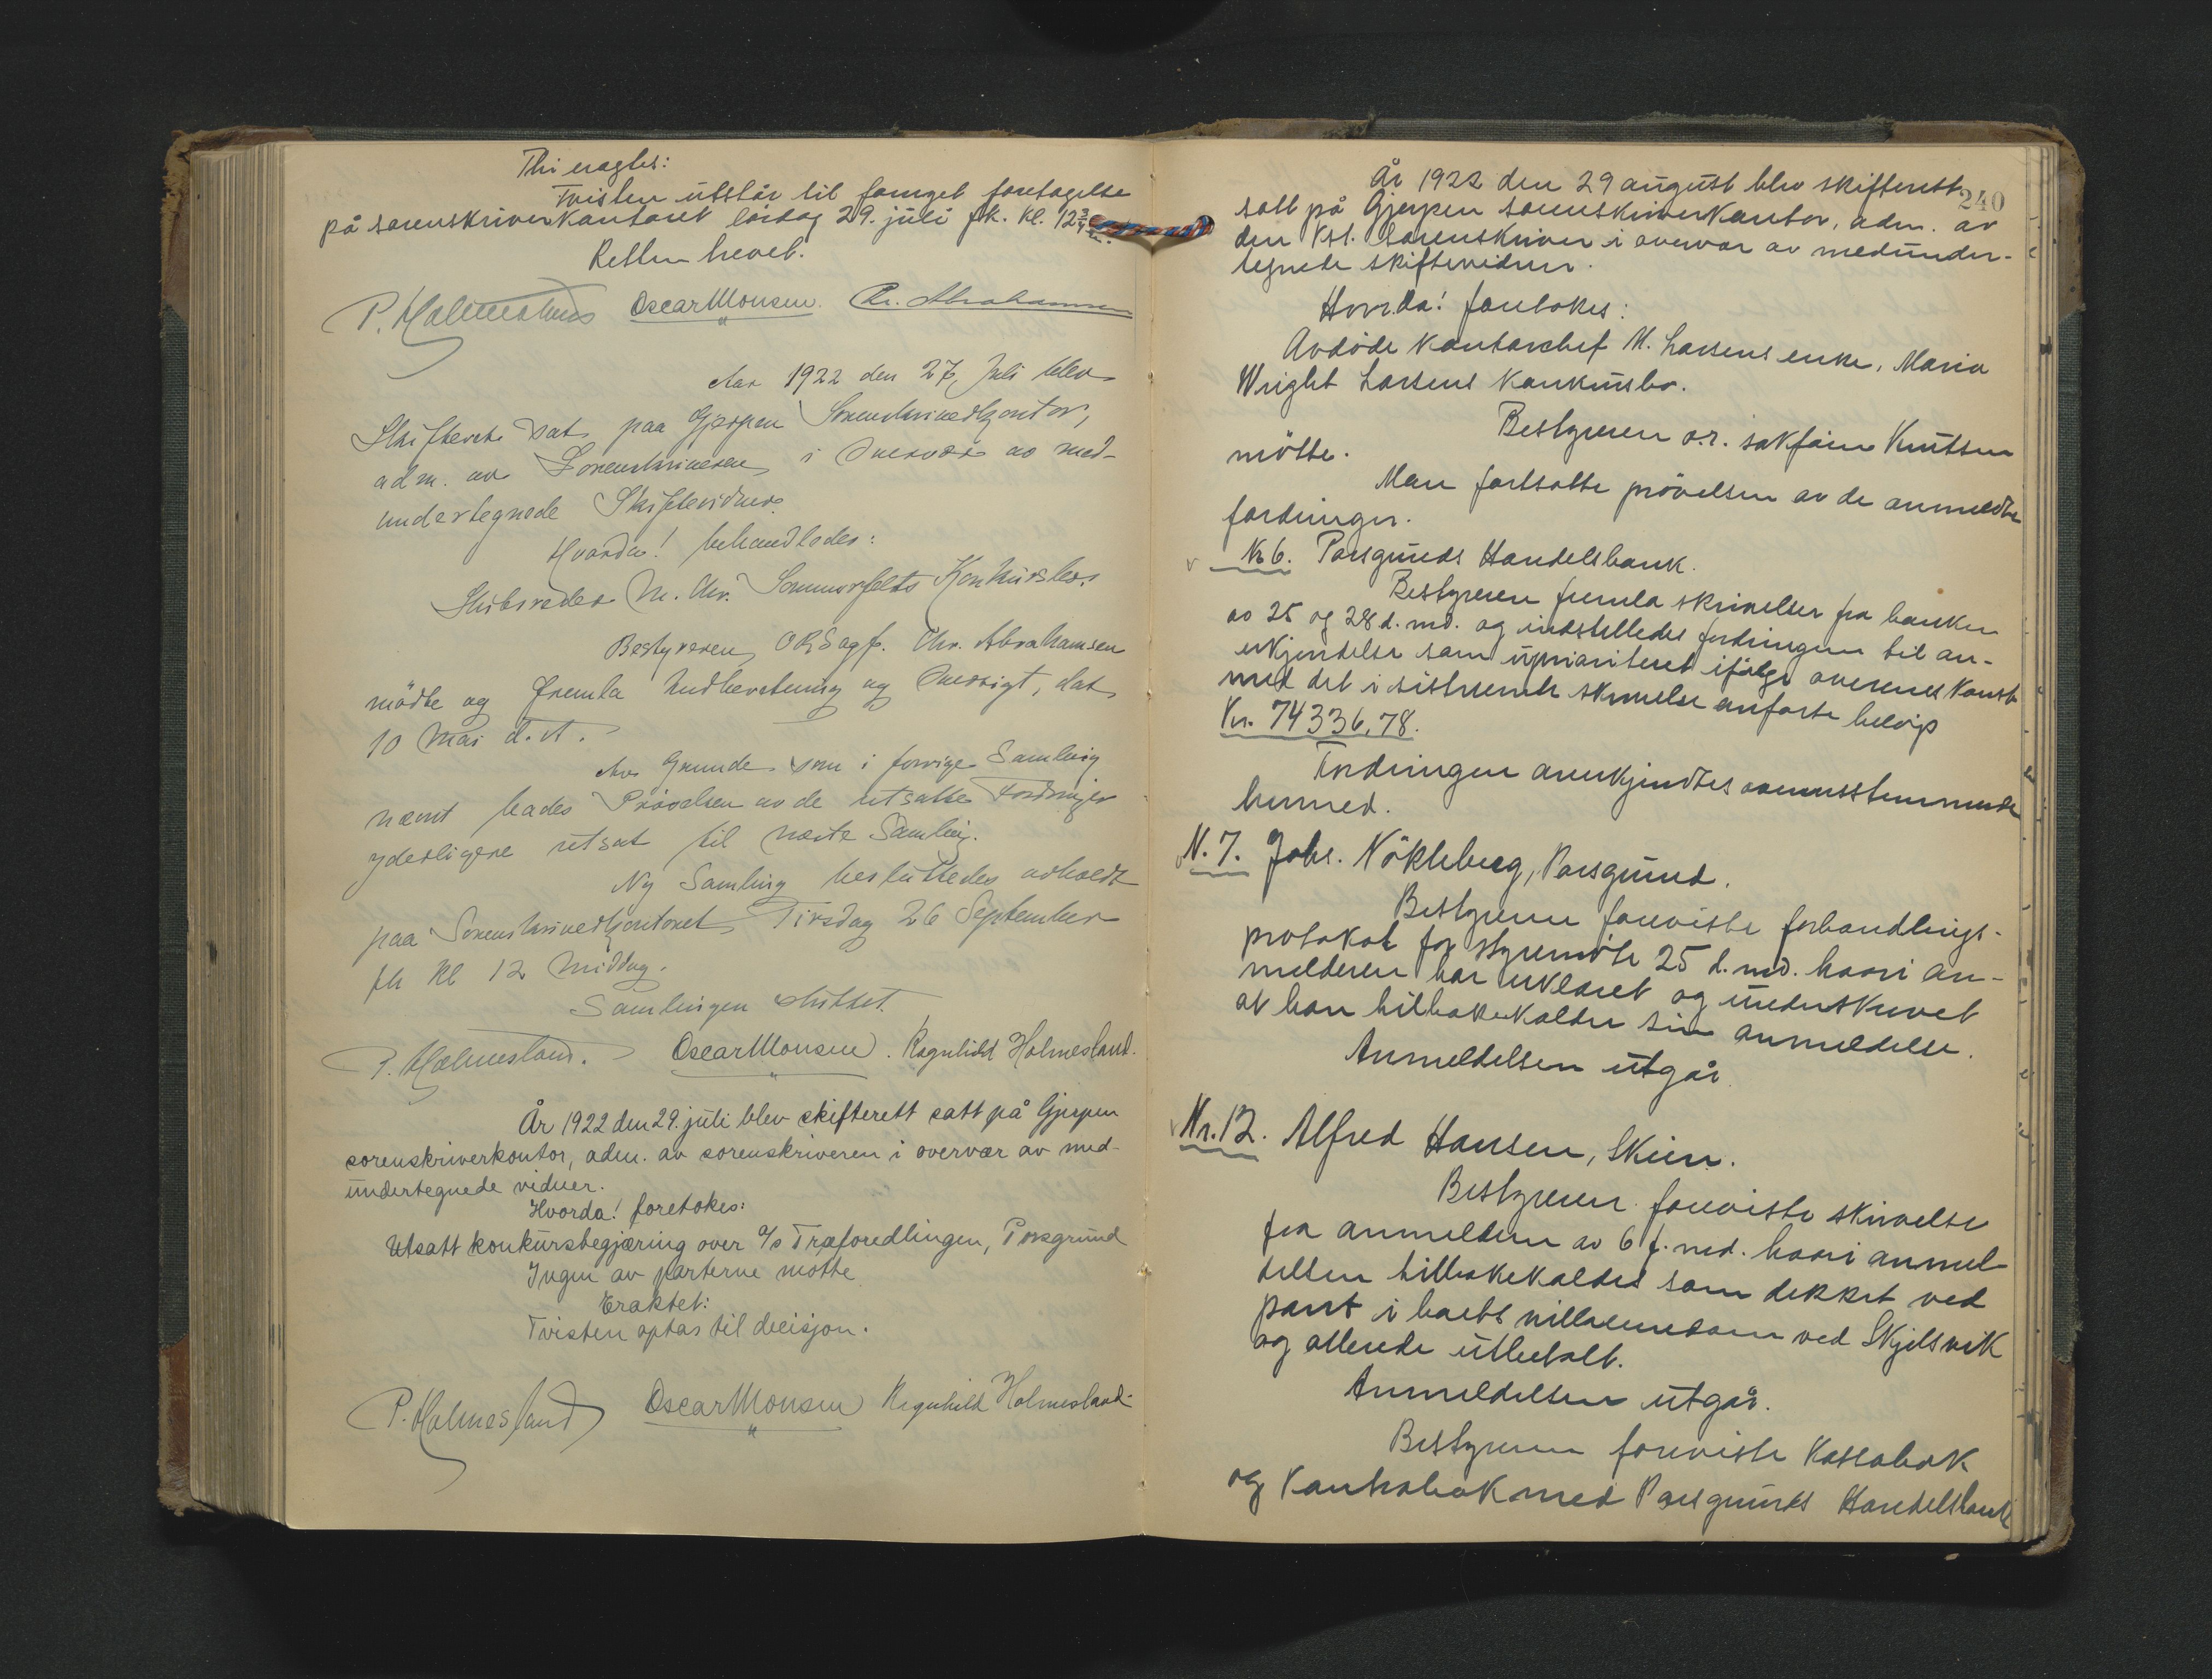 Thi eragtes:
Tvisten utstår til fornyet foretagelse
på sorenskriverkontoret lördag 29. juli fk. kl. 12 3/4 em.
Retten hevet.
P. Holmesland Oscar Monsen. Chr. Abrahamsen
Aar 1922 den 27. Juli blev
Skifteret sat paa Gjerpen Sorenskriverkontor,
adm. av Sorenskriveren i Overvær av med-
undertegnede Skiftevidner.
Hvorda! behandledes:
Skibsreder M. Chr. Sommerfelts Konkursbo.
Bestyreren, ORSagf. Chr. Abrahamsen
mødte og fremla Indberetning og Oversigt, dat.
10 Mai d. A.
Av Grunde som i forrige Samling
nævnt bades Prøvelsen av de utsatte Fordringer
yderligere utsat til næste Samling.
Ny Samling besluttedes avholdt
paa Sorenskriverkontoret Tirsdag 26 September
fk Kl 12 Middag.
Samlingen sluttet.
P. Holmesland. Oscar Monsen. Ragnhild Holmesland.
År 1922 den 29. juli blev skifterett satt på Gjerpen
sorenskriverkontor, adm. av sorenskriveren i overvær av med-
undertegnede vidner.
Hvorda! foretokes:
Utsatt konkursbegjæring over A/S Træforedlingen, Porsgrund
Ingen av parterne møtte
Eraktet:
Tvisten optas til decisjon.
P. Holmesland Oscar Monsen Ragnhild Holmesland
240
År 1922 den 29 august blev skifterett
satt på Gjerpen sorenskriverkontor, adm. av
den kst. sorenskriver i overvær av medunder-
tegnede skiftevidner.
Hvorda! foretokes:
Avdöde kontorchef M. Larsens enke, Maria
Wright Larsens konkursbo.
Bestyreren o.r. sakförer Knutsen
mötte.
Man fortsatte prövelsen av de anmeldte
fordringer.
Nr 6. Porsgrunds Handelsbank.
Bestyreren fremla skrivelser fra banken
av 25 og 28 d. md. og indstilledes fordringen til an-
erkjendelse som uprioritert ifölge overenskomst
med det i sistnevnte skrivelse anförte belöp
Kr. 74336,78.
Fordringen anerkjendtes overensstemmende
hermed.
N. 7. Johs. Nökleberg, Porsgrund.
Bestyreren foreviste forhandlings-
protokol for styremöte 25 d. md. hvori an-
melderen har erklæret og underskrevet
at han tilbakekalder sin anmeldelse.
Anmeldelsen utgår
Nr. 12. Alfred Hansen, Skien.
Bestyreren foreviste skrivelse
fra anmelderen av 6 f. md. hvori anmel-
delsen tilbakekaldes som dekket ved
pant i boets villaeiendom ved Skjelsvik
og allerede utbetalt.
Anmeldelsen utgår.
Bestyreren foreviste kassabok
og kontrabok med Porsgrunds Handelsbank